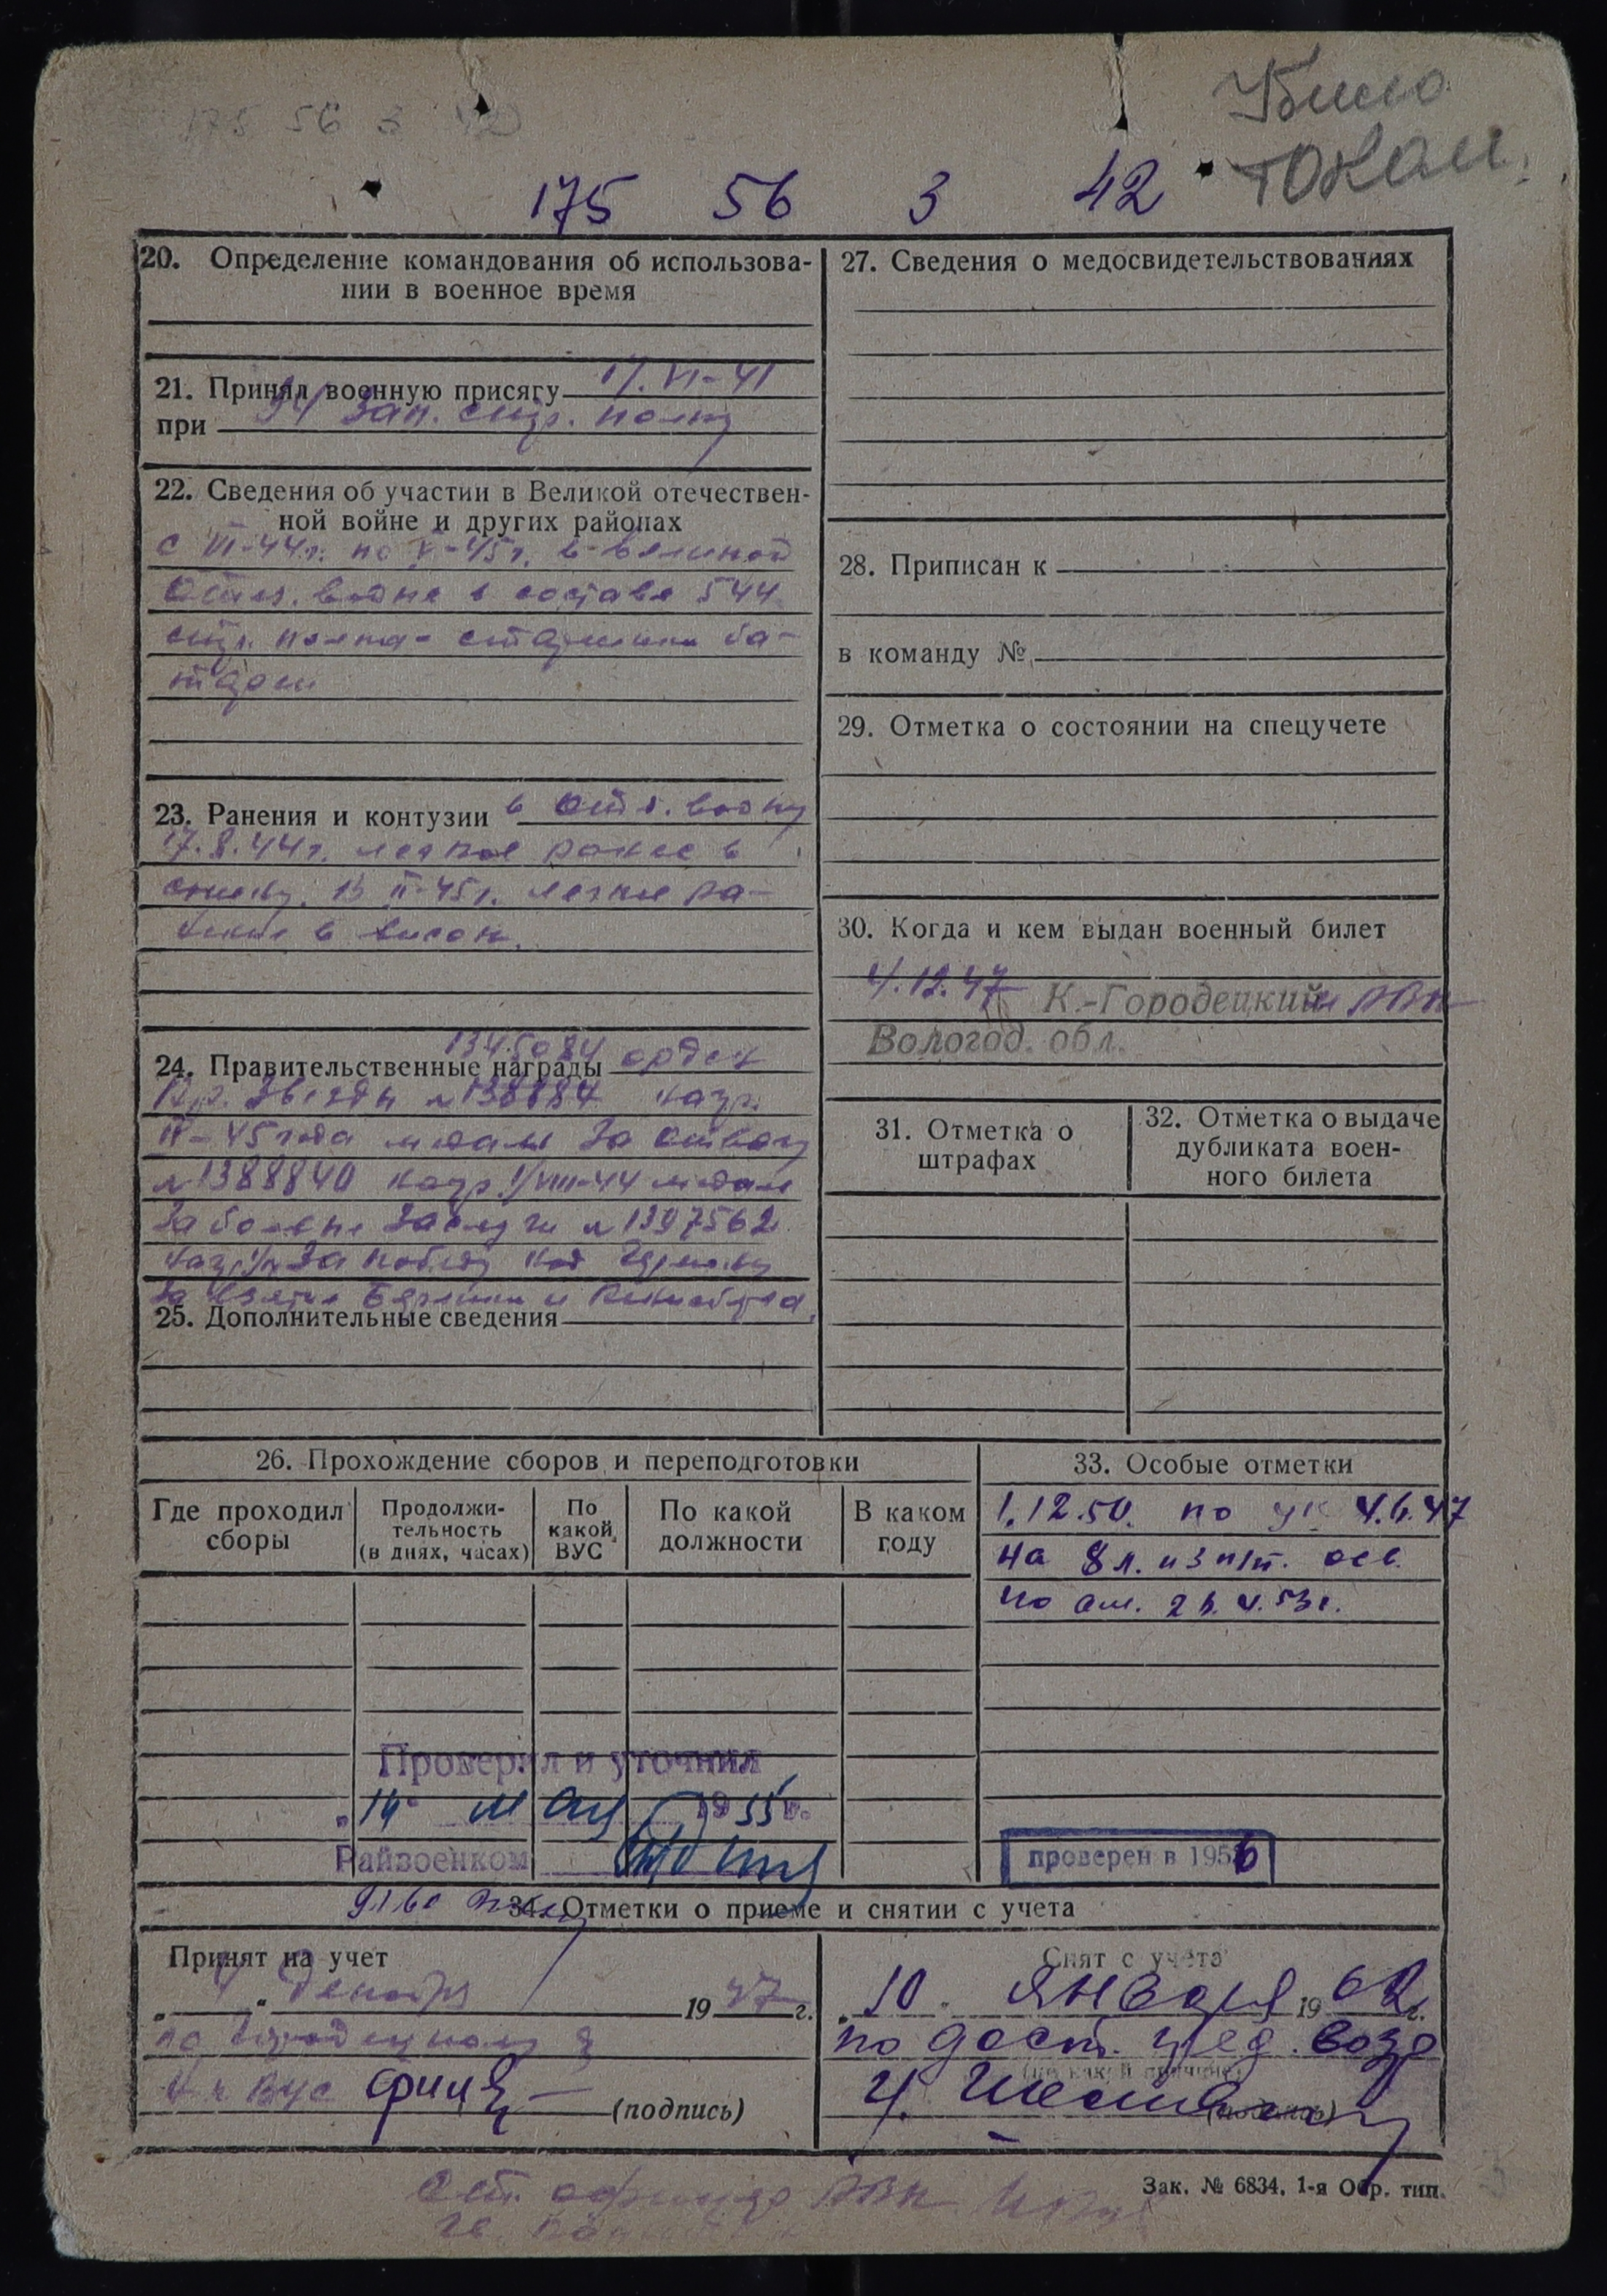 175 56 3 42
Убило
током.
175 56 3 42
20. Определение командования об использова-
нии в военное время
21. Принял военную присягу 17.VI-41
при 34 зап. стр. полку
22. Сведения об участии в Великой отечествен-
ной войне и других районах
с VI-44г. по V-45г. в великой
отеч. войне в составе 544
стр. полка - старшина ба-
тареи
23. Ранения и контузии в отеч. войну
17.8.44г. легкое ранее в
спину. В II-45г. легкое ра-
нение в висок.
1345084
24. Правительственные награды орден
Кр. Звезды №138884 нагр.
IV-45 года медаль За отвагу
№1388840 нагр. VIII-44 медаль
За боевые заслуги №1397562
За победу над Германи
За взятие Берлина и
25. Дополнительные сведения
27. Сведения о медосвидетельствованиях
28. Приписан к
в команду №
29. Отметка о состоянии на спецучете
30. Когда и кем выдан военный билет
4.12.47 К.-Городецкий РВК
Вологод. обл.
31. Отметка о
штрафах
32. Отметка о выдаче
дубликата воен-
ного билета
26. Прохождение сборов и переподготовки
Где проходил
сборы
Продолжи-
тельность
(в днях, часах)
По
какой
ВУС
По какой
должности
В каком
году
33. Особые отметки
1.12.50. по ук 4.6.47
на 8 л. из п/т. осв.
по ам. 2
Проверил и уточнил
„14“ мая 1955г.
Райвоенком
проверен в 1956
34. Отметки о приеме и снятии с учета
Принят на учет
„4“ декабря 1947 г.
по Городецкому
ВУС (подпись)
Снят с учета
„10“ января 1962 г.
по дост. пред. возр
(по какой причине)
(подпись)
Зак. № 6834. 1-я Обр. тип.
РВК